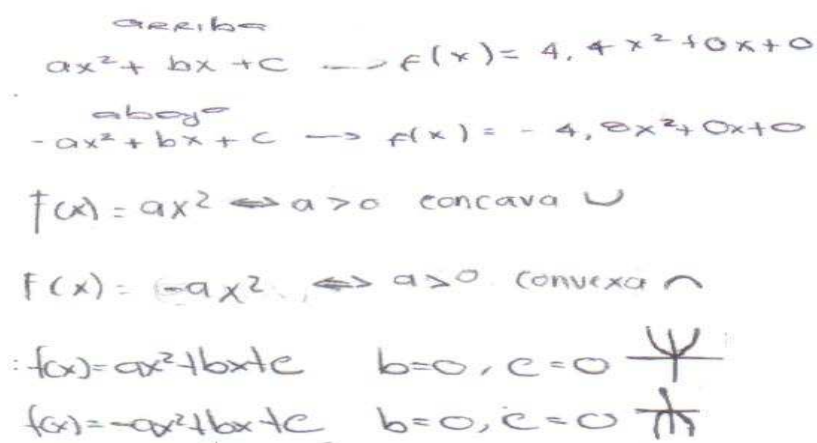 arriba
ax² + bx + c → f(x) = 4,4x² + 0x + 0
abajo
-ax² + bx + c → f(x) = -4,8x² + 0x + 0
f(x) = ax² ⇔ a > 0 concava ∪
f(x) = -ax² ⇔ a > 0 convexa ∩
f(x) = ax² + bx + c b = 0, c = 0
f(x) = -ax² + bx + c b = 0, c = 0